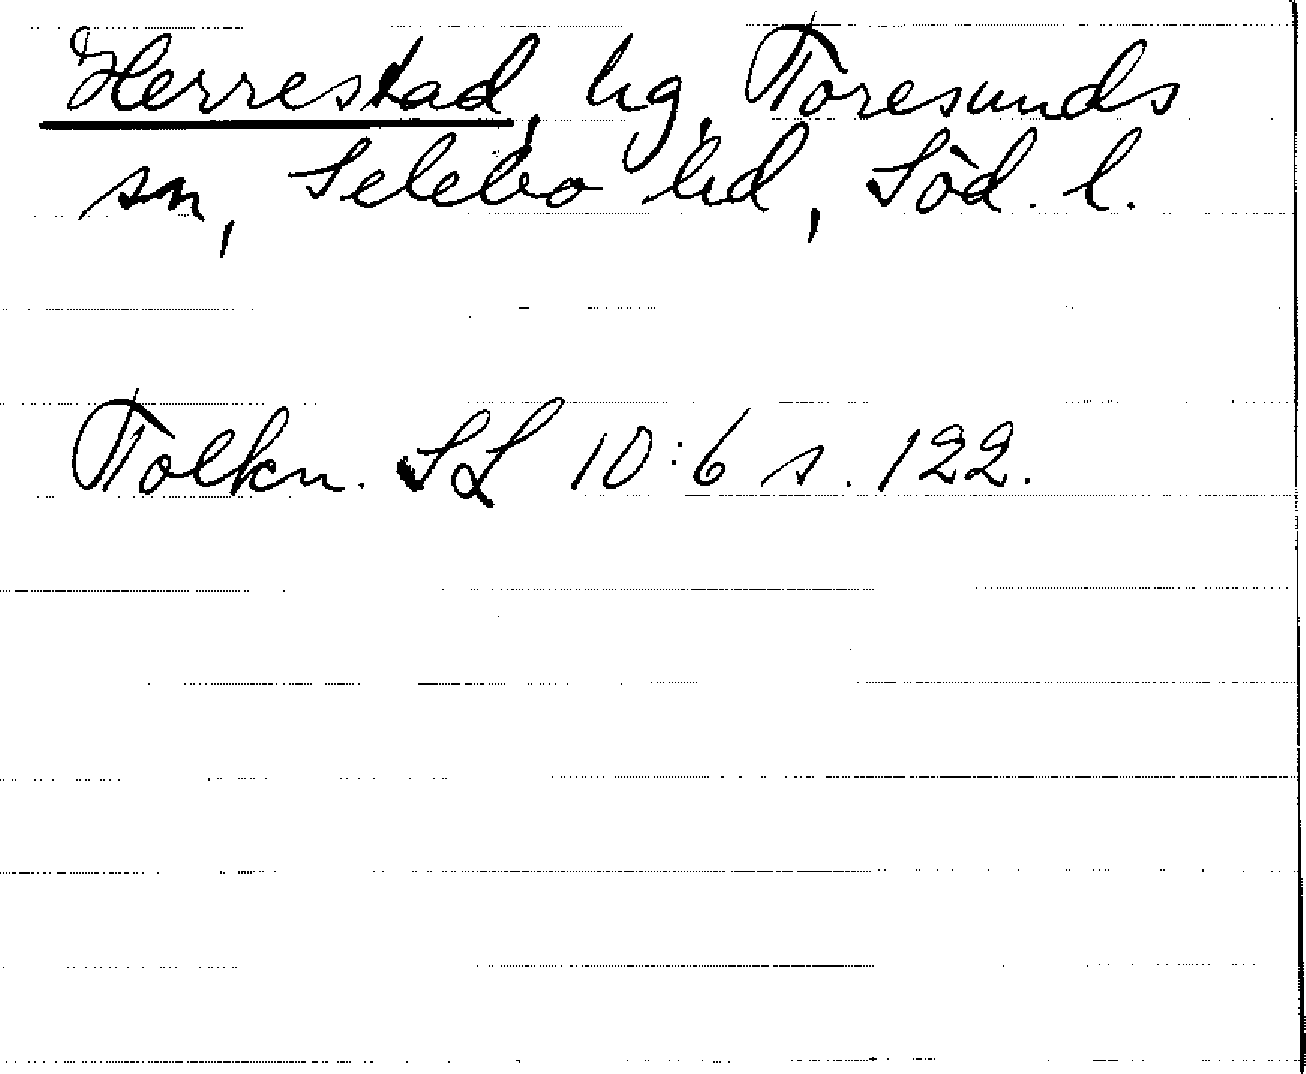 Herrestad, hg, Toresunds
sn, Selebo hd, Söd. l.
Tolkn. SL 10:6 s. 122.